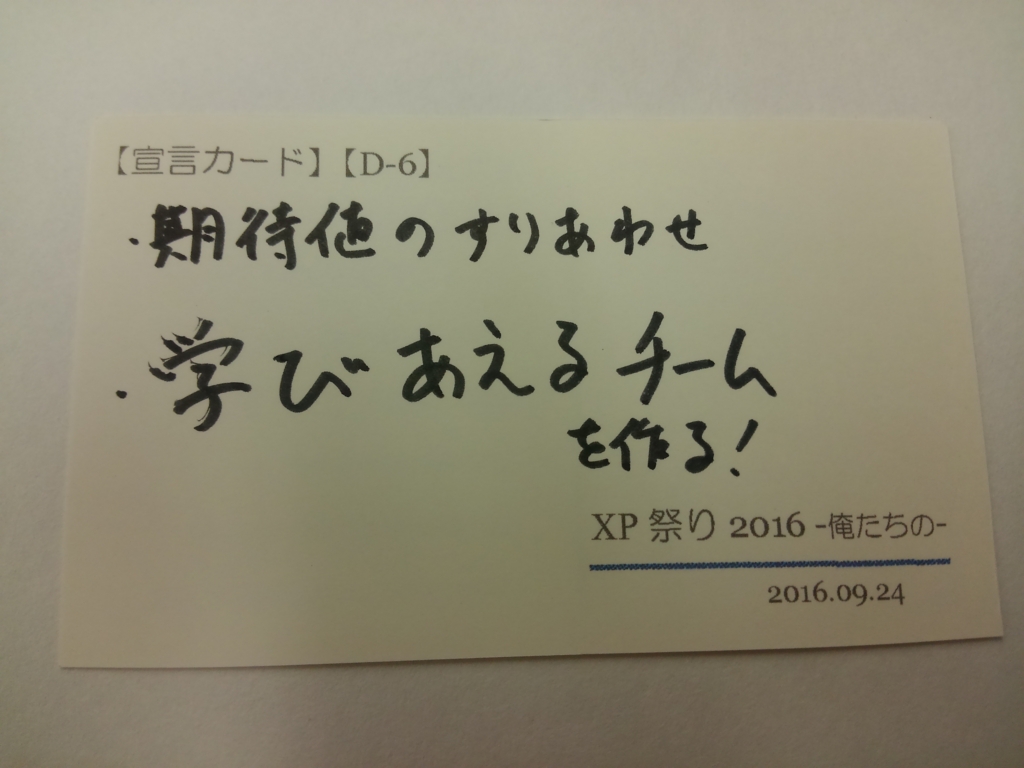 【宣言カード】【D-6】
・期待値のすりあわせ
・学びあえるチーム
を作る!
XP 祭り 2016 -俺たちの-
2016.09.24